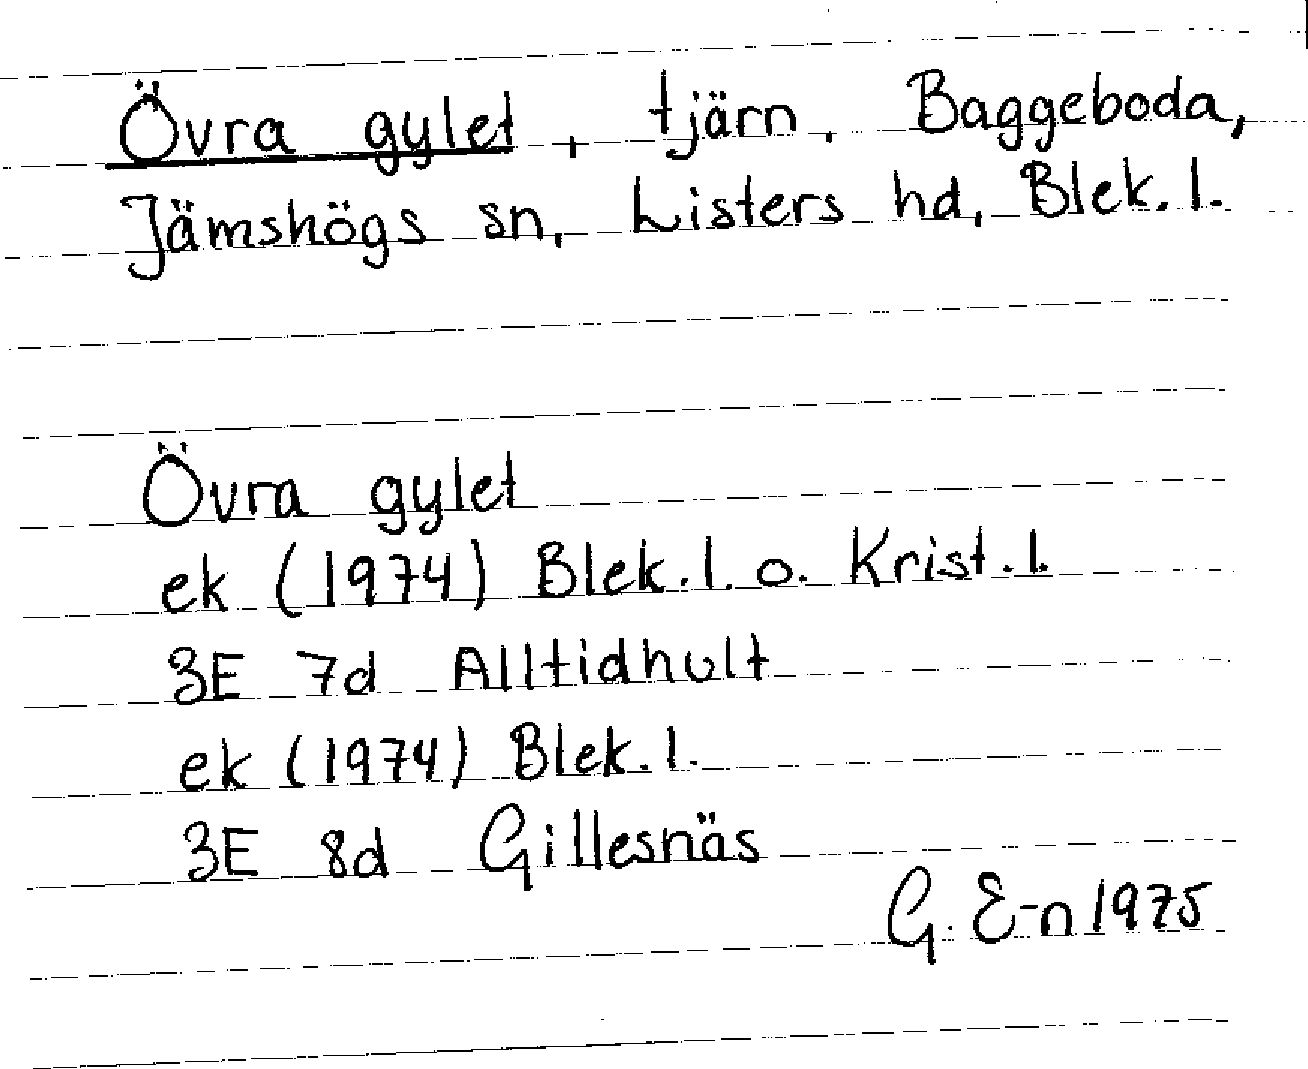 Övra gylet, tjärn, Baggeboda,
Jämshögs sn, Listers hd, Blek. l.
Övra gylet
ek (1974) Blek. l. o. Krist. l.
3E 7d Alltidhult
ek (1974) Blek. l.
3E 8d Gillesnäs
G. E-n 1975